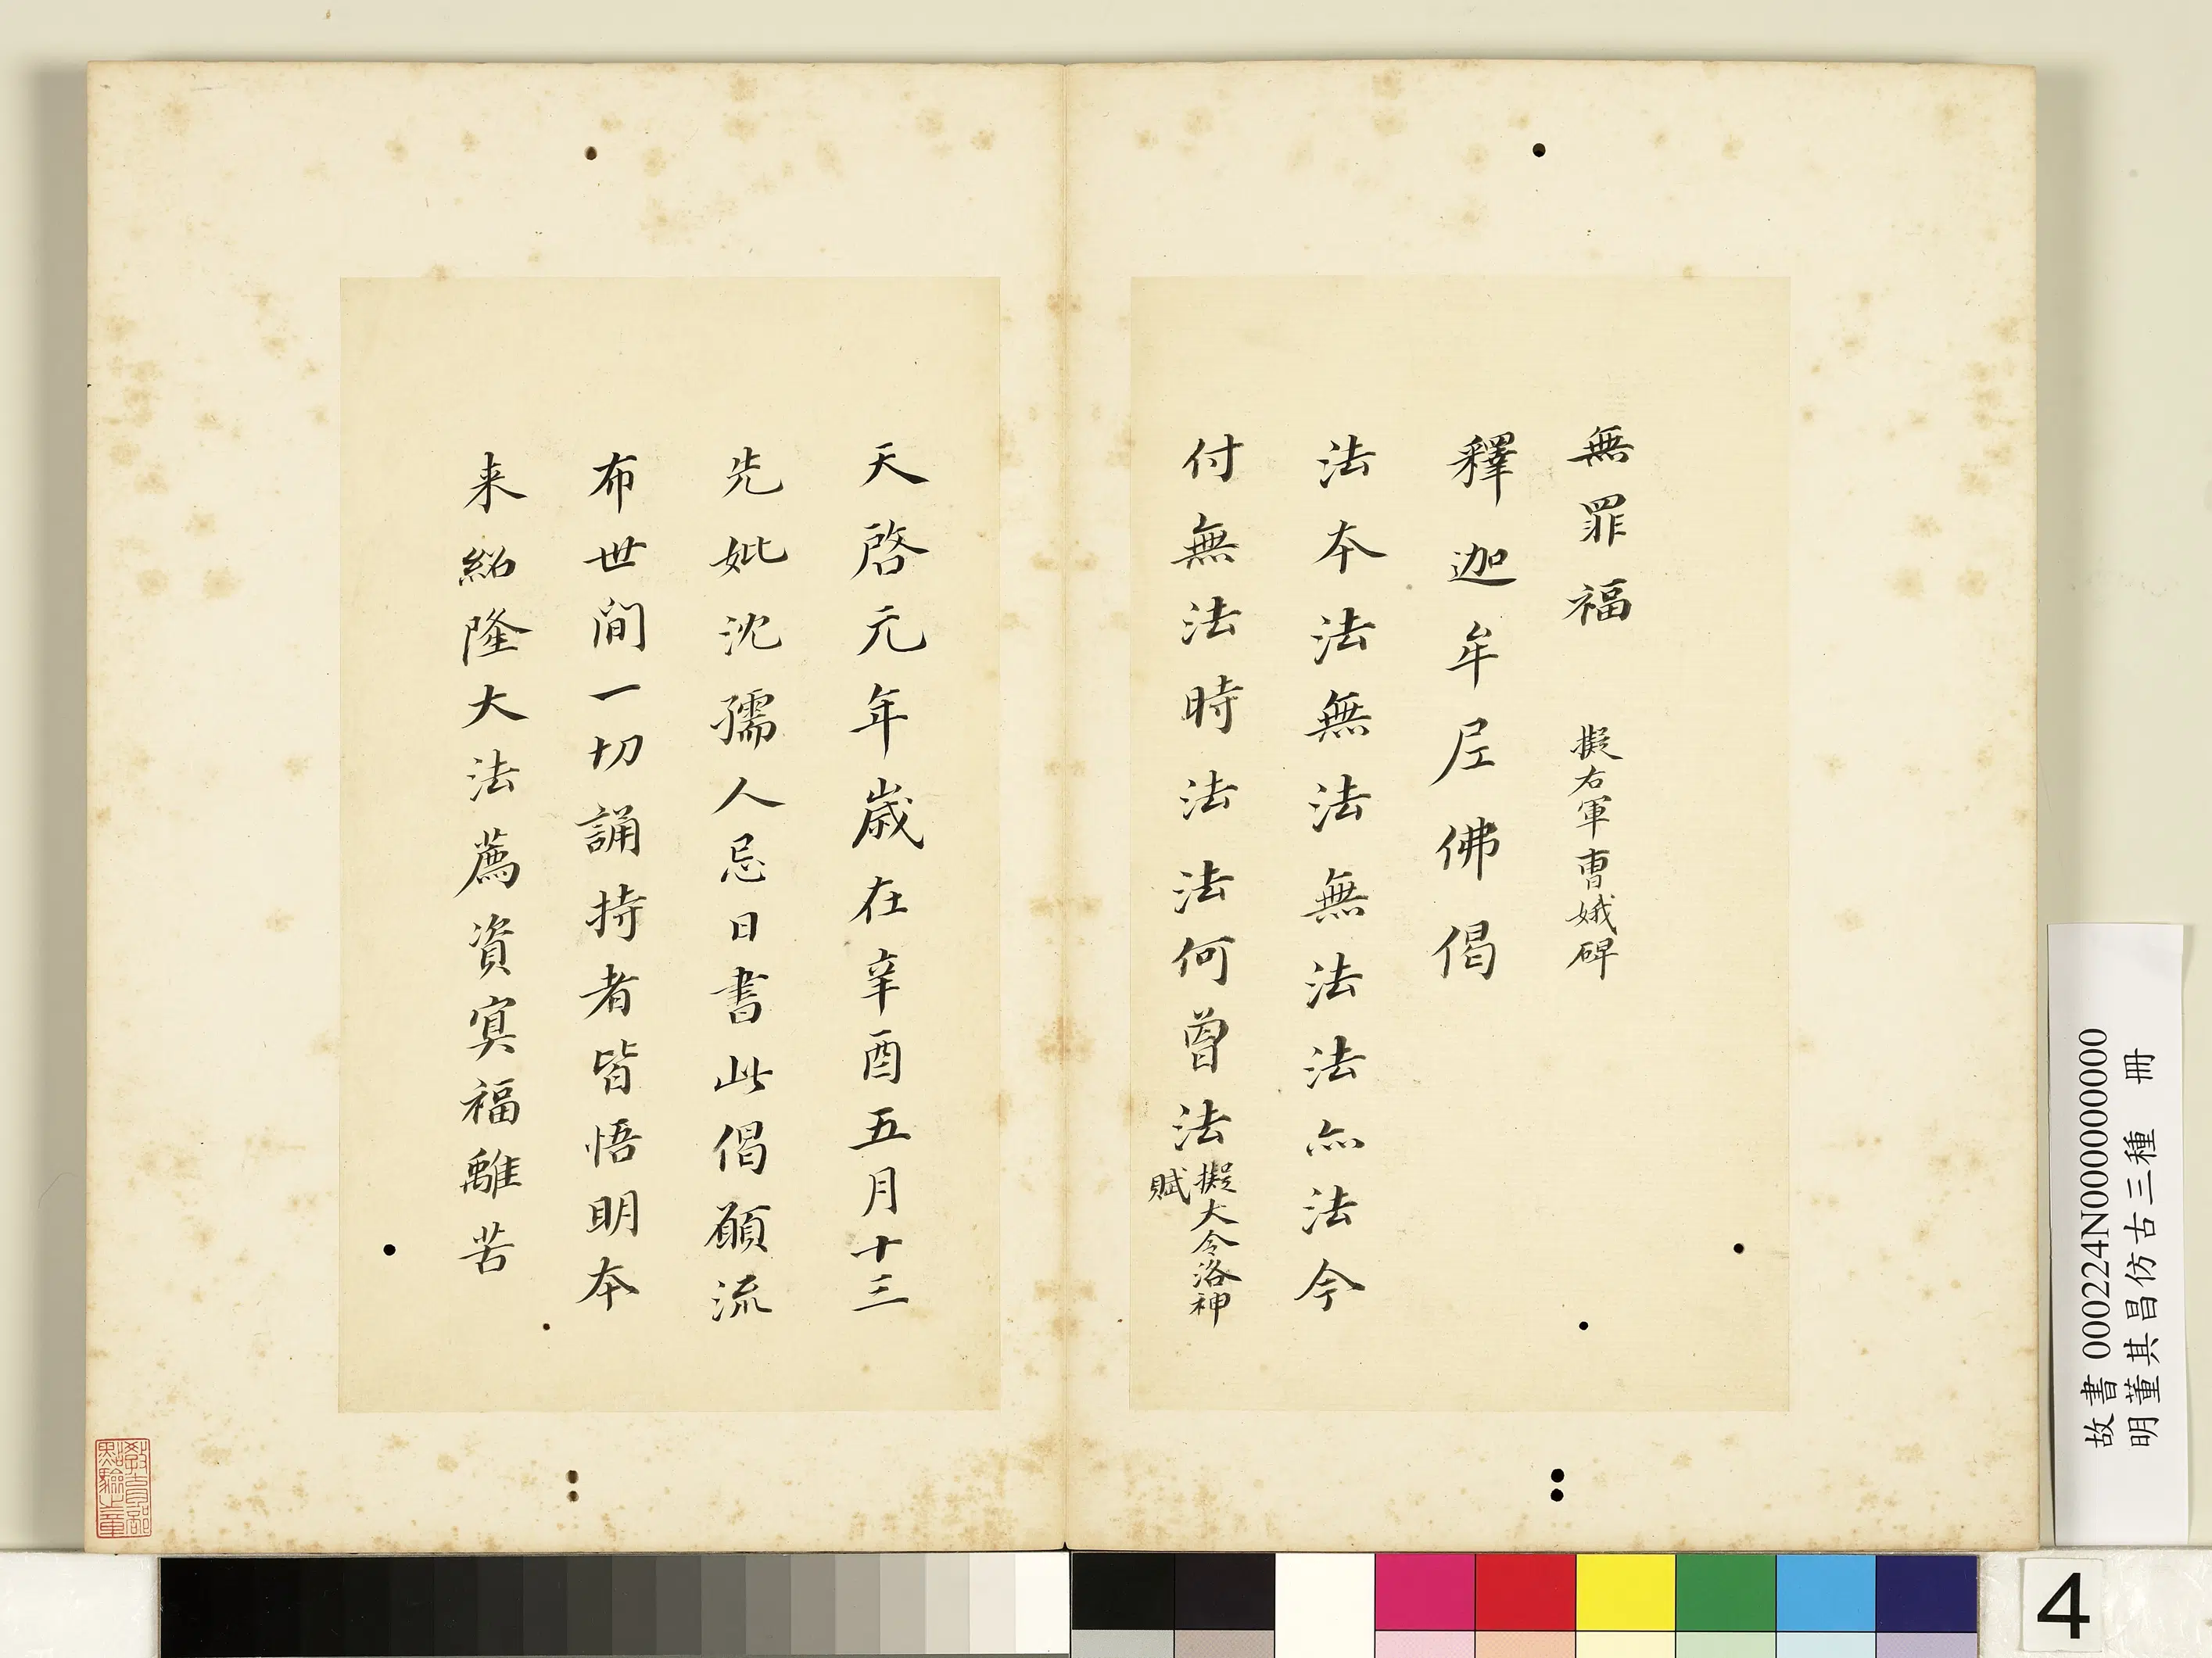 無罪福 擬右軍曹娥碑
釋迦牟尼佛偈
法本法無法無法法亦法今
付無法時法法何曾法擬大令洛神
賦
天啓元年歲在辛酉五月十三
先妣沈孺人忌日書此偈願流
布世間一切誦持者皆悟明本
来紹隆大法薦資冥福離苦
教育部
點驗之章
故書 000224N000000000
明董其昌仿古三種 冊
4